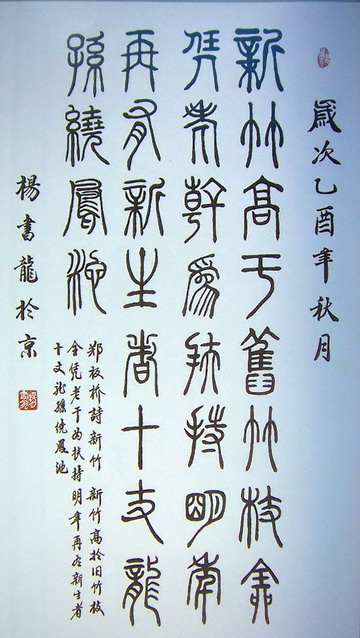 歲次乙酉年秋月
新竹高于舊竹枝全
凭老幹為扶持明年
再有新生者十丈龍
孫繞鳳池
郑板桥詩新竹 新竹高於旧竹枝
全凭老干为扶持明年再有新生者
十丈龙孫绕鳳池
楊書龍於京